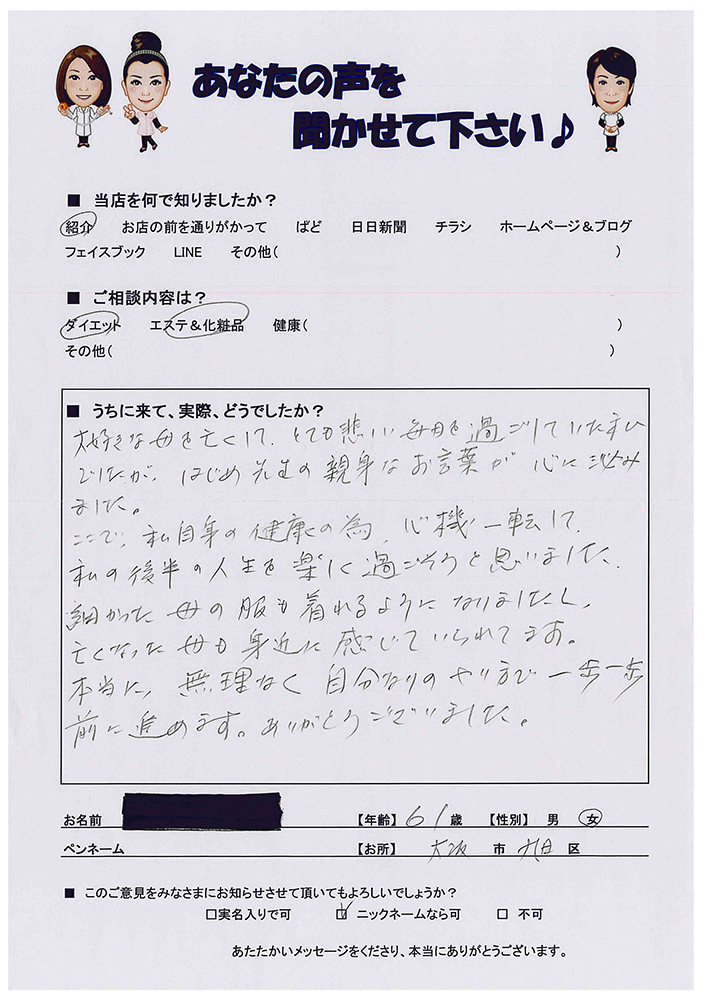 あなたの声を
聞かせて下さい♪
■ 当店を何で知りましたか？
紹介 お店の前を通りがかって ぱど 日日新聞 チラシ ホームページ＆ブログ
フェイスブック LINE その他( )
■ ご相談内容は？
ダイエット エステ＆化粧品 健康( )
その他( )
■ うちに来て、実際、どうでしたか？
大好きな母を亡くして、とても悲しい毎日を過ごしていた私
でしたが、はじめ先生の親身なお言葉が心に沁み
ました。
ここで、私自身の健康の為、心機一転して、
私の後半の人生を楽しく過ごそうと思いました。
細かった母の服も着れるようになりましたし、
亡くなった母も身近に感じていられてます。
本当に、無理なく自分なりのやり方で一歩一歩
前に進めます。ありがとうございました。
お名前 【年齢】 61 歳 【性別】 男 女
ペンネーム 【お所】 大阪 市 旭 区
■ このご意見をみなさまにお知らせさせて頂いてもよろしいでしょうか？
□実名入りで可 ☑ ニックネームなら可 □ 不可
あたたかいメッセージをくださり、本当にありがとうございます。